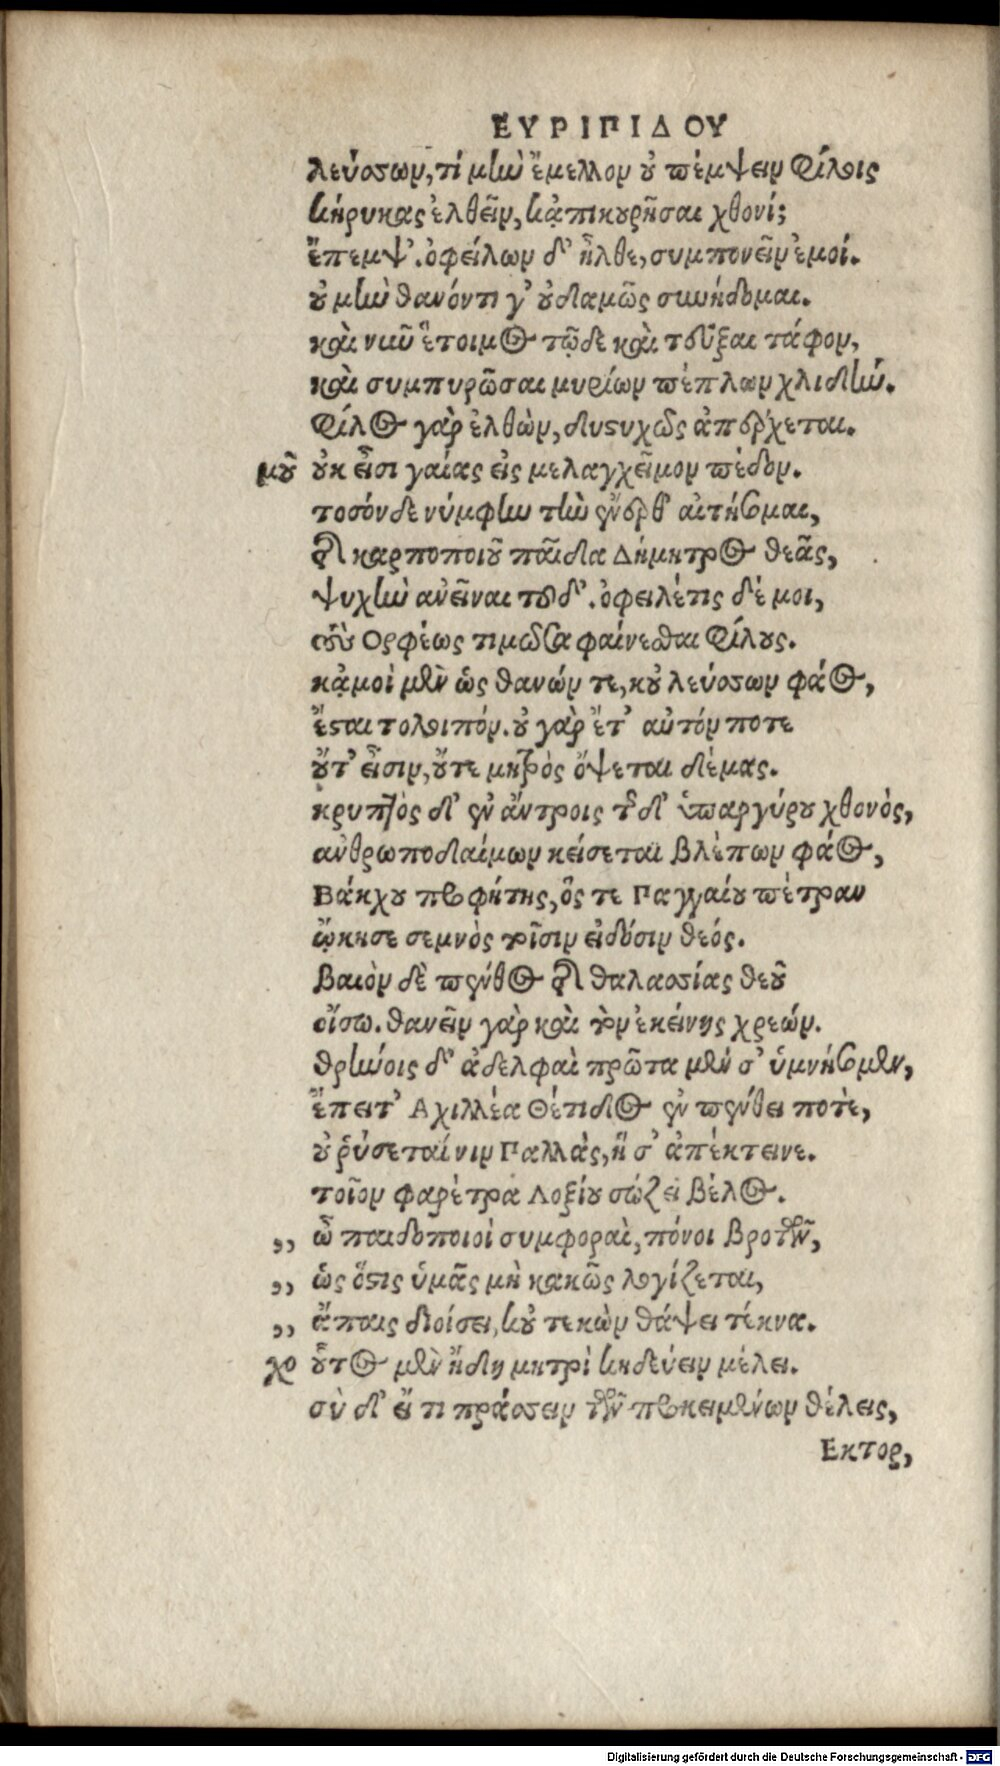 ΕΥΡΙΠΙΔΟΥ
λεύσσων, τί μὴν ἔμελλον οὐ πέμψειν φίλοις
κήρυκας ἐλθεῖν, κἀπικουρῆσαι χθονί;
ἔπεμψ'. ὀφείλων δ' ἦλθε, συμπονεῖν ἐμοί.
οὐ μὴν θανόντι γ' οὐδαμῶς συνήδομαι.
καὶ νῦν ἕτοιμος τῷδε καὶ τεῦξαι τάφον,
καὶ συμπυρῶσαι μυρίων πέπλων χλιδήν.
φίλος γὰρ ἐλθὼν, δυστυχῶς ἀπέρχεται.
μοῦ οὐκ εἶσι γαίας εἰς μελαγχεῖμον πέδον.
τοσόνδε νύμφην τὴν ἔνερθ' αἰτήσομαι,
τῆς καρποποιοῦ παῖδα Δήμητρος θεᾶς,
ψυχὴν ἀνεῖναι τοῦδ'. ὀφειλέτις δέ μοι,
τοὺς Ορφέως τιμῶσα φαίνεσθαι φίλους.
κᾀμοὶ μὲν ὡς θανών τε, κοὐ λεύσσων φάος,
ἔσται τολοιπόν. οὐ γὰρ ἔτ' αὐτόν ποτε
οὔτ' εἶσιν, οὔτε μητρὸς ὄψεται δέμας.
κρυπτὸς δ' ἐν ἄντροις τῆς δ' ὑπαργύρου χθονὸς,
ἀνθρωποδαίμων κείσεται βλέπων φάος,
Βάκχου προφήτης, ὅς τε Παγγαίου πέτραν
ᾤκησε σεμνὸς τοῖσιν εἰδόσιν θεός.
βαιὸν δὲ πένθος τῆς θαλασσίας θεοῦ
οἴσω. θανεῖν γὰρ καὶ τὸν ἐκείνης χρεών.
θρήνοις δ' ἀδελφαὶ πρῶτα μέν σ' ὑμνήσομεν,
ἔπειτ' Αχιλλέα Θέτιδος ἐν πένθει ποτὲ,
οὐ ῥύσεταί νιν Παλλὰς, ἥ σ' ἀπέκτεινε.
τοῖον φαρέτρα Λοξίου σώζει βέλος.
,, ὦ παιδοποιοὶ συμφοραὶ, πόνοι βροτῶν,
,, ὡς ὅστις ὑμᾶς μὴ κακῶς λογίζεται,
,, ἄπαις διοίσει, κοὐ τεκὼν θάψει τέκνα.
χο οὗτος μὲν ἤδη μητρὶ κηδεύειν μέλει.
σὺ δ' εἴ τι πράσσειν τῶν προκειμένων θέλεις,
Εκτορ,
Digitalisierung gefördert durch die Deutsche Forschungsgemeinschaft - DFG